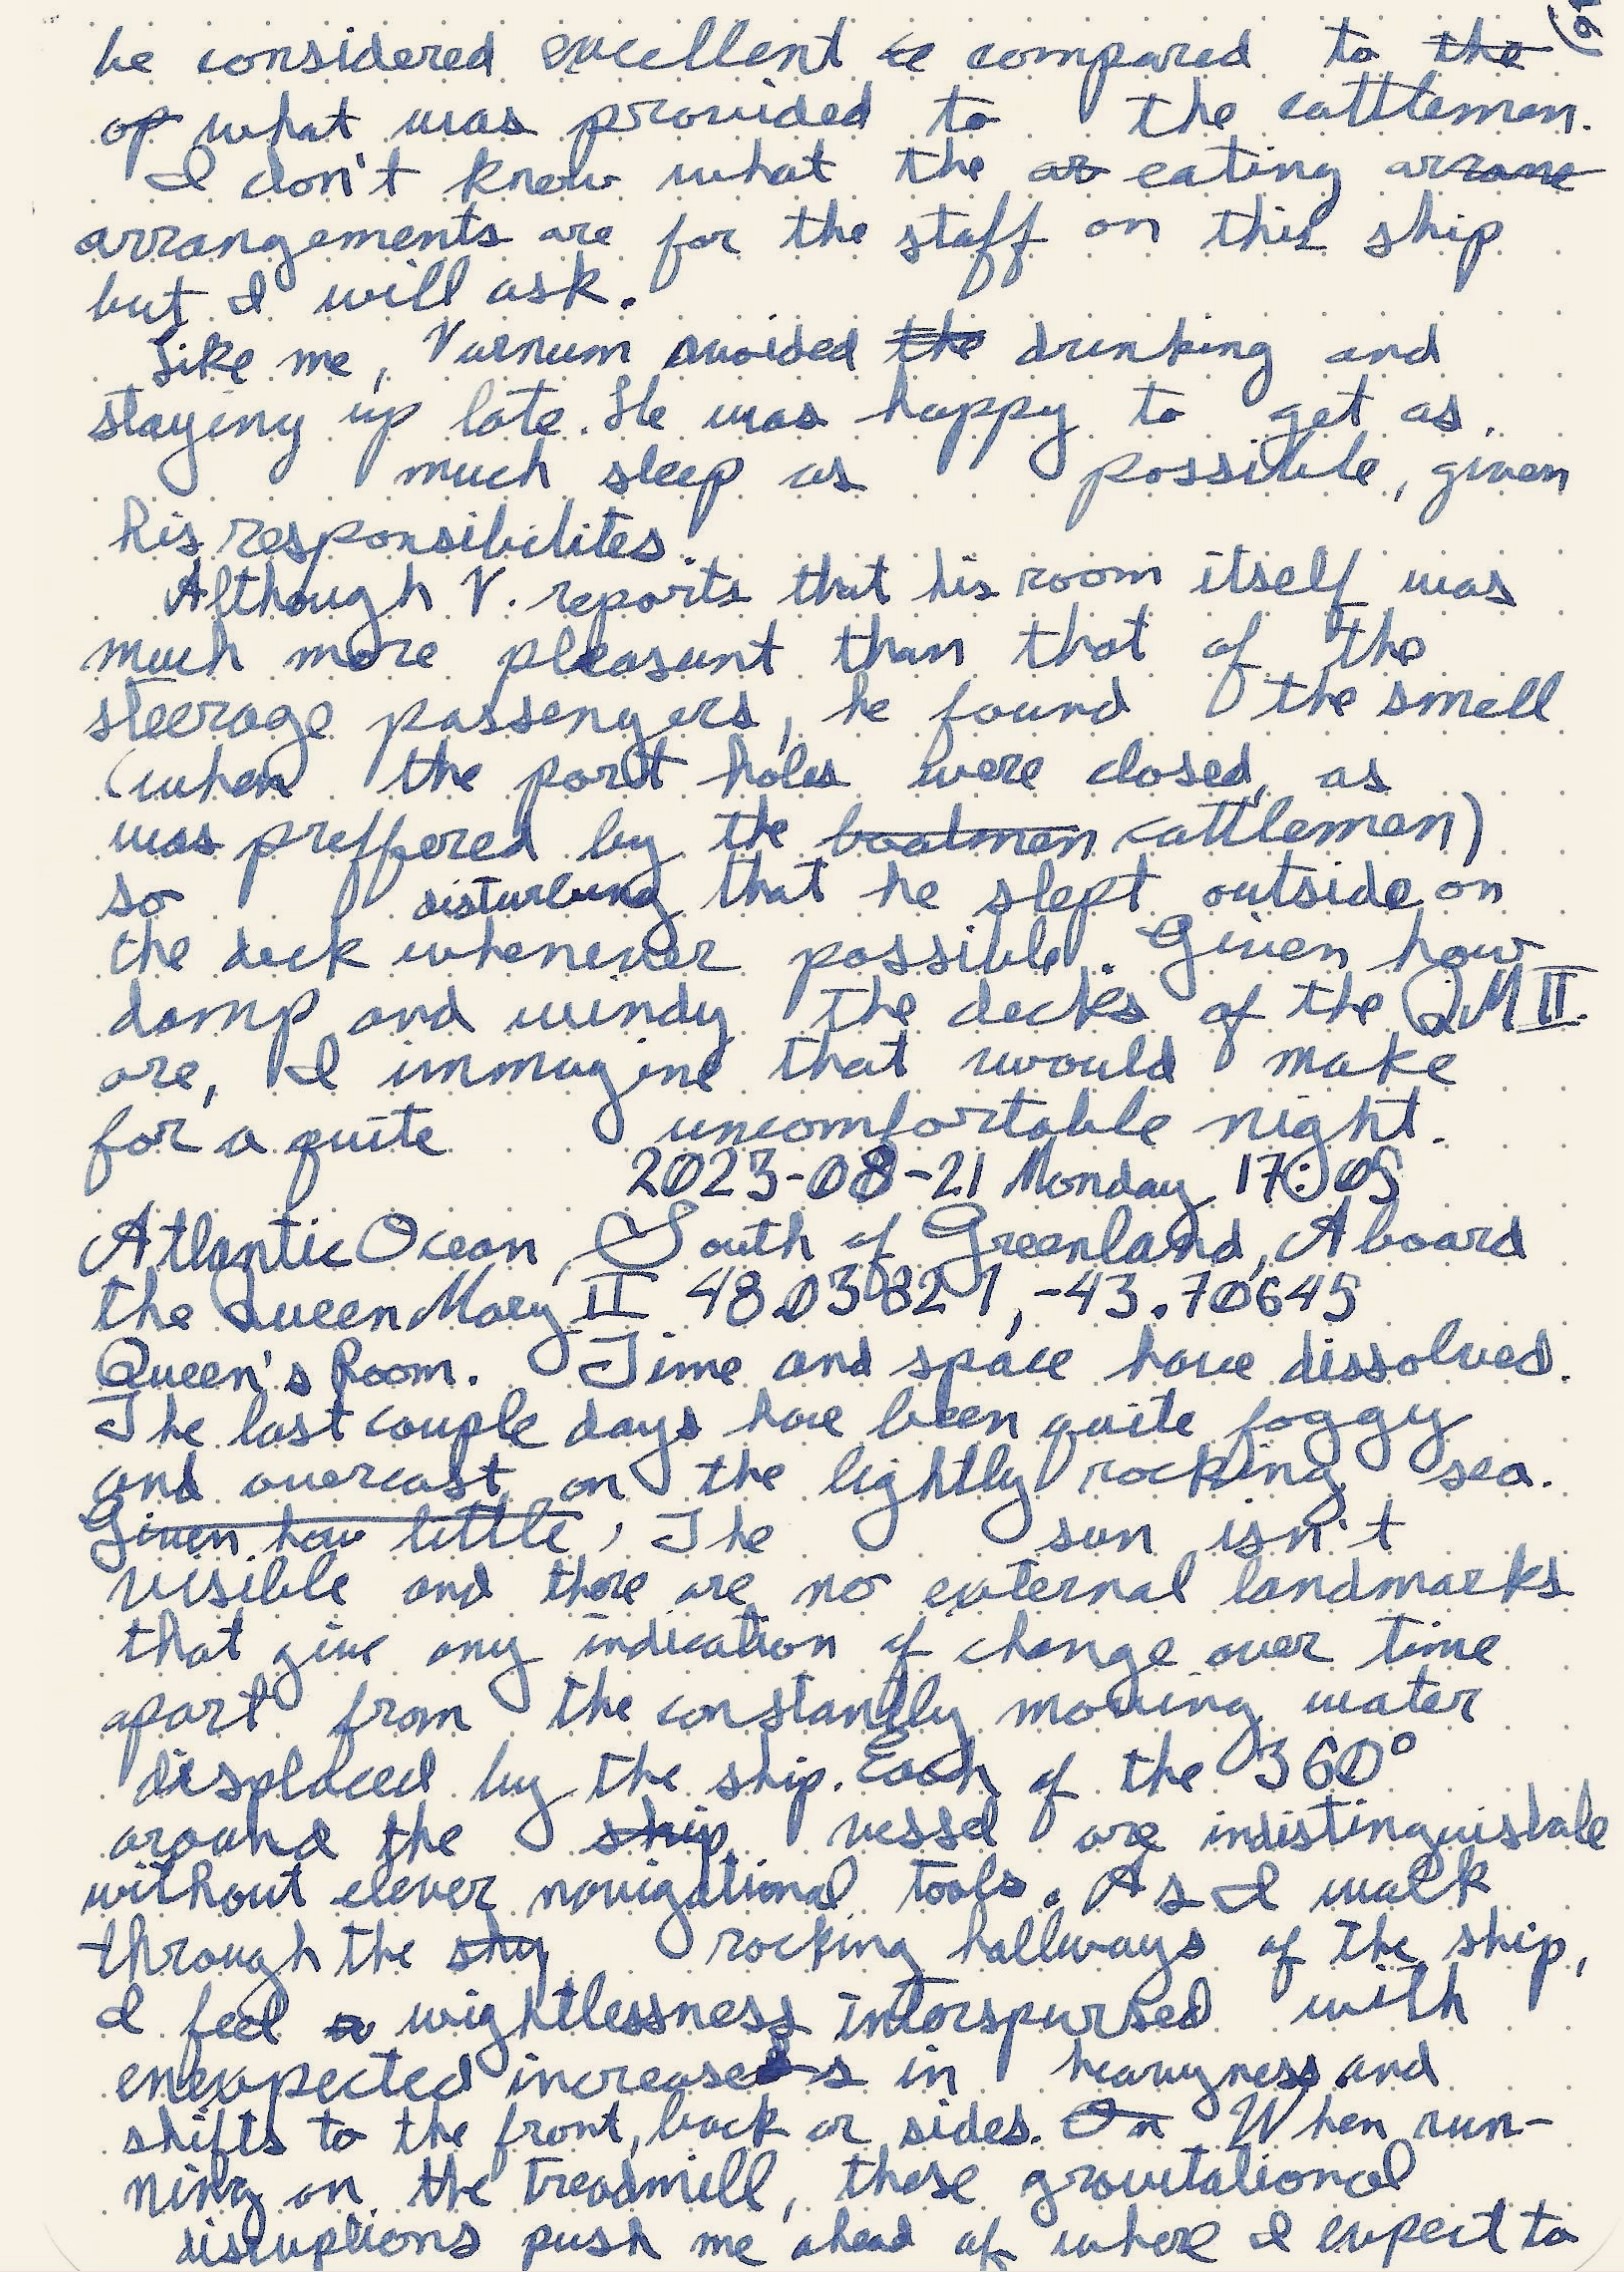 be considered excellent ce compared to the
of what was provided to the cattlemen.
I don't know what the ar eating arrane
arrangements are for the staff on this ship
but I will ask.
Like me, Varnum avoided the drinking and
staying up late. He was happy to get as
much sleep as possible, given
his responsibilites.
Although V. reports that his room itself was
much more pleasant than that of the
steerage passengers, he found the smell
(when the port holes were closed, as
was preffered by the boatmen cattlemen)
so disturbing that he slept outside on
the deck whenever possible. Given how
damp and windy the decks of the QM II
are, I immagine that would make
for a quite uncomfortable night.
2023-08-21 Monday 17:05
Atlantic Ocean, South of Greenland, Aboard
the Queen Mary II 48.03821, -43.70645
Queen's Room. Time and space have dissolved.
The last couple days have been quite foggy
and overcast on the lightly rocking sea.
Given how little, The sun isn't
visible and there are no external landmarks
that give any indication of change over time
apart from the constantly moving water
displaced by the ship. Each of the 360°
around the ship vessel are indistinguishale
without clever navigational tools. As I walk
through the shy rocking hallways of the ship,
I feel a wightlessness interspursed with
enexpected increases in heavyness and
shifts to the front, back or sides. On When run-
ning on the treadmill, these gravitational
disruptions push me ahead of where I expect to